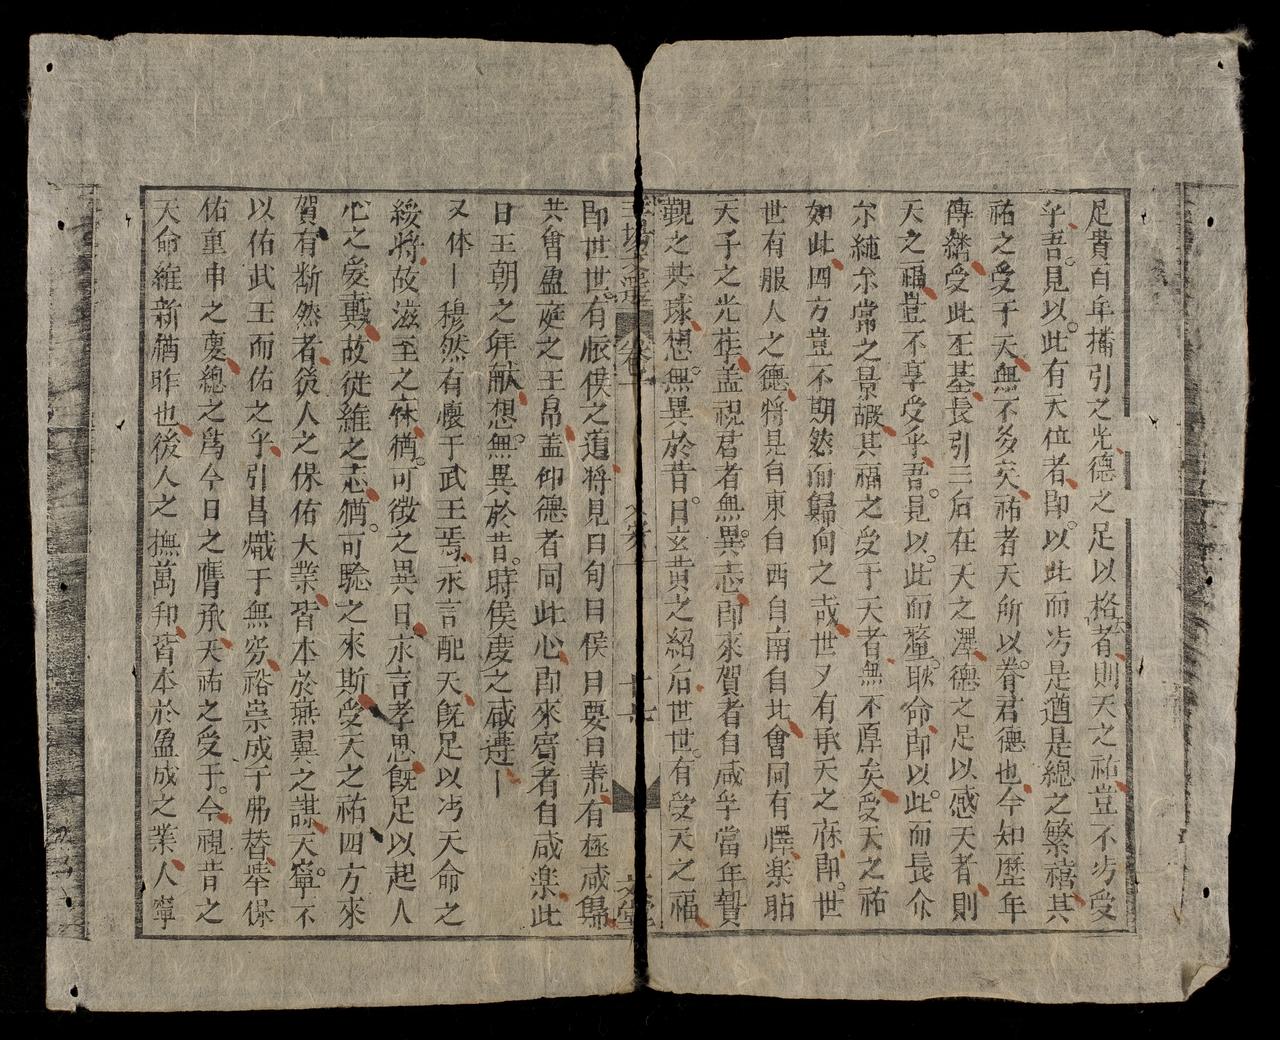 足貴百年播引之光德之足以格者則天之祐豈不圴受
乎吾見以此有天位者即以此而圴是遒是總之繁禧其
祐之受于天無不多矣祐者天所以眷君德也今知歷年
傳緒受此丕基長引三后在天之澤德之足以感天者則
天之福豈不享受乎吾見以此而釐耿命即以此而長介
尓純尓常之景嘏其福之受于天者無不厚矣受天之祐
如此四方豈不期然而歸向之哉世又有承天之庥即世
世有服人之德將見自東自西自南自北會同有懌楽貼
天子之光在盖視君者無異志即來賀者自咸孚當年贄
觀之共球想無異於昔日玄黄之紹后世世有受天之福
即世世有恢侯之道將見日旬日侯日要日荒有極咸歸
共會盈庭之王帛盖仰德者同此心即來賓者自咸楽此
日王朝之年献想無異於昔時侯度之咸遵
又体 穆然有懷于武王焉永言配天既足以圴天命之
綏將故滋至之休猶可徵之異日永言孝思既足以起人
心之爱戴故從維之志猶可騐之來斯受天之祐四方來
賀有断然者後人之保佑大業皆本於燕翼之謀天寧不
以佑武王而佑之乎引昌熾于無穷裕崇成于弗替举保
佑重申之慶總之爲今日之膺承天祐之受于今視昔之
天命維新猶昨也後人之撫萬邦皆本於盈成之業人寧